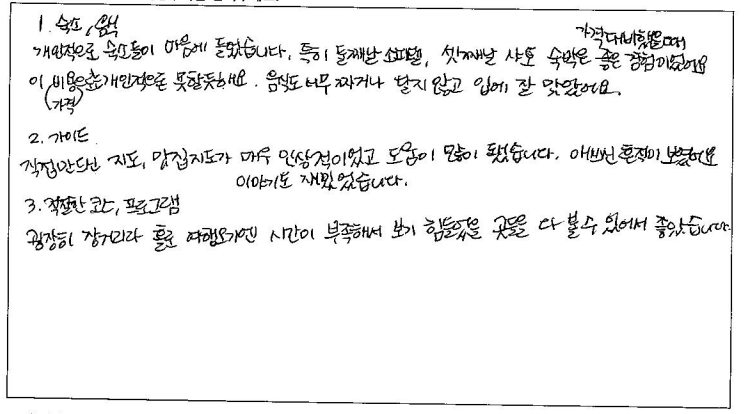 1. 숙소, 음식
가격대비했을때
개인적으로 숙소들이 마음에 들었습니다. 특히 둘째날 소피텔, 셋째날 샤토 숙박은 좋은 경험이었어요
이 비용으론 개인적으로 못할듯해요. 음식도 너무 짜거나 달지 않고 입에 잘 맞았어요.
(가격)
2. 가이드
직접만드신 지도, 맛집지도가 매우 인상적이었고 도움이 많이 됐습니다. 애쓰신 흔적이 보였어요
이야기도 재밌었습니다.
3. 적절한 코스, 프로그램
굉장히 장거리라 홀로 여행오기엔 시간이 부족해서 보기 힘들었을 곳들을 다 볼 수 있어서 좋았습니다